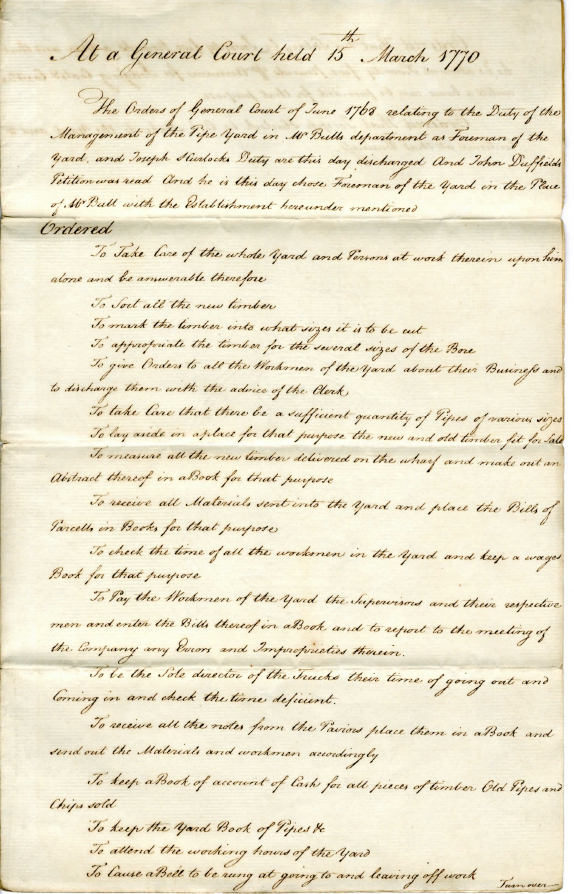 At a General Court held 15th March 1770
The Orders of General Court of June 1768 relating to the Duty of the
Management of the Pipe Yard in Mr Bulls department as Foreman of the
Yard, and Joseph Sturlocks Duty are this day discharged And John Duffields
Petition was read And he is this day chose Foreman of the Yard in the Place
of Mr Bull with the Establishment hereunder mentioned
Ordered
To Take Care of the whole Yard and Persons at work therein upon him
alone and be answerable therefore
To Sort all the new timber
To mark the timber into what sizes it is to be cut
To appropriate the timber for the several sizes of the Bore
To give Orders to all the Workmen of the Yard about their Business and
to discharge them with the advice of the Clerk
To take Care that there be a sufficient quantity of Pipes of various sizes
To lay aside in a place for that purpose the new and old timber fit for Sale
To measure all the new timber delivered on the wharf and make out an
Abstract thereof in a Book for that purpose
To receive all Materials sent into the Yard and place the Bills of
Parcells in Books for that purpose
To check the time of all the workmen in the Yard and keep a wages
Book for that purpose
To Pay the Workmen of the Yard the Supervisors and their respective
men and enter the Bills thereof in a Book and to report to the meeting of
the Company any Errors and Improprieties therein.
To be the Sole director of the Trucks their time of going out and
Coming in and check the time deficient.
To receive all the notes from the Paviors place them in a Book and
send out the Materials and workmen accordingly
To keep a Book of account of Cash for all pieces of timber Old Pipes and
Chips sold
To keep the Yard Book of Pipes &c
To attend the working hours of the Yard
To Cause a Bell to be rung at going to and leaving off work
Turn over